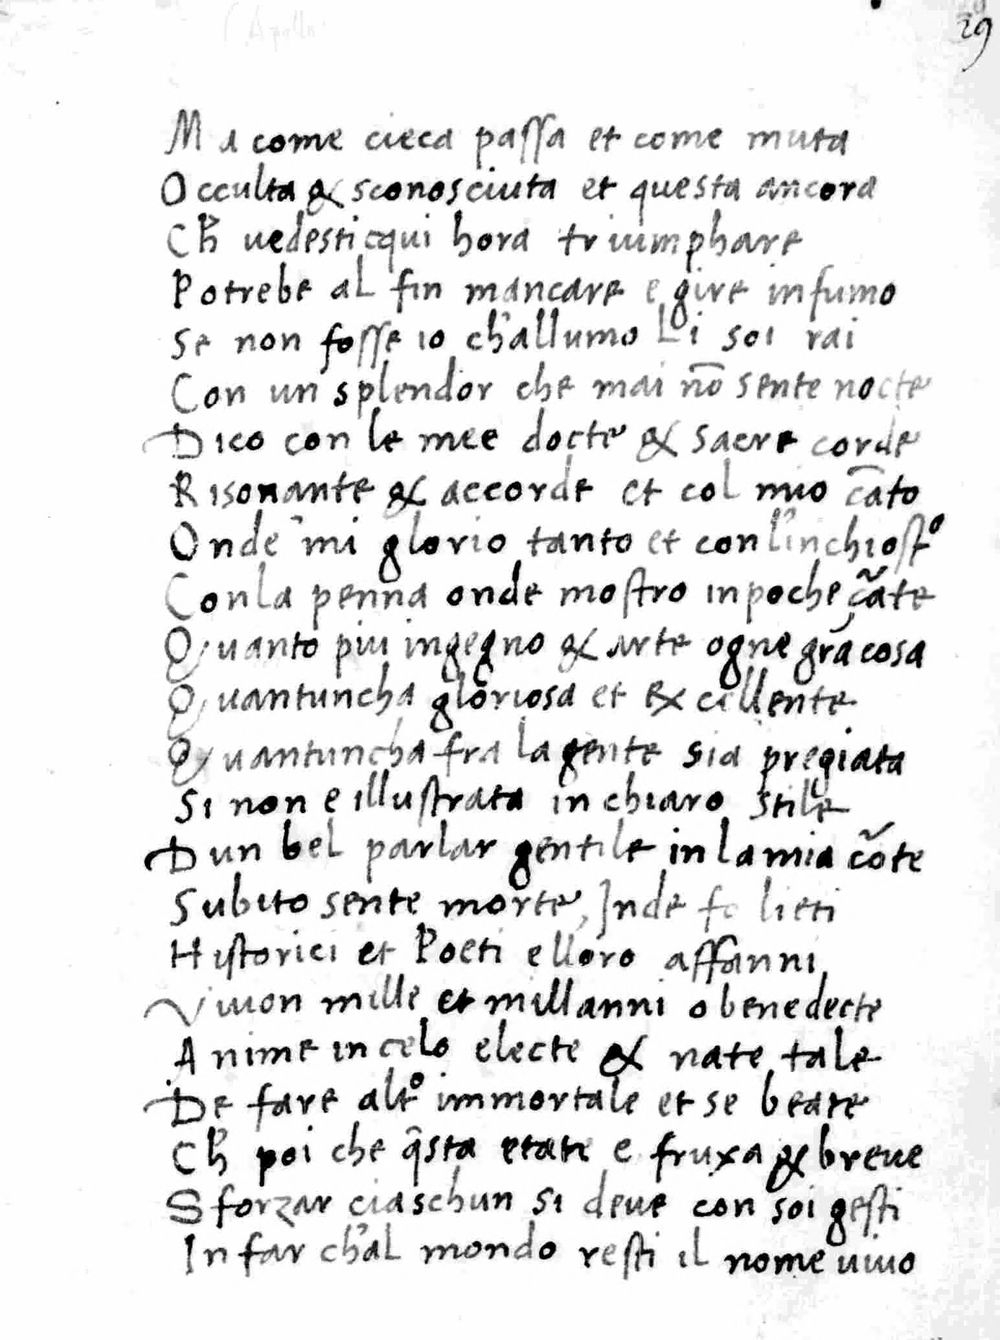 (Apollo
29
Ma come cieca passa et come muta
Occulta & sconosciuta et questa ancora
Ch̄ uedesti qui hora triumphare
Potrebe al fin mancare e gire in fumo
Se non fosse io ch'allumo Li soi rai
Con un splendor che mai nō sente nocte
Dico con le mee docte & sacre corde
Risonante & accorde et col mio cāto
Onde mi glorio tanto et con l'inchiostº
Con la penna onde mostro in poche cãte
Quanto piu ingegno & arte ogne grā cosa
Quantuncha gloriosa et excellente
Quantuncha fra la gente sia pregiata
Si non e illustrata in chiaro stile
Dun bel parlar gentile in la mia cõte
Subito sente morte, Inde fo lieti
Historici et Poeti e lloro affanni
Viuon mille et millanni o benedecte
Anime in celo electe & nate tale
De fare altº immortale et se beate
Ch̄ poi che q̄sta etate e fruxa & breue
Sforzar ciaschun si deue con soi gesti
In far ch'al mondo resti il nome uiuo